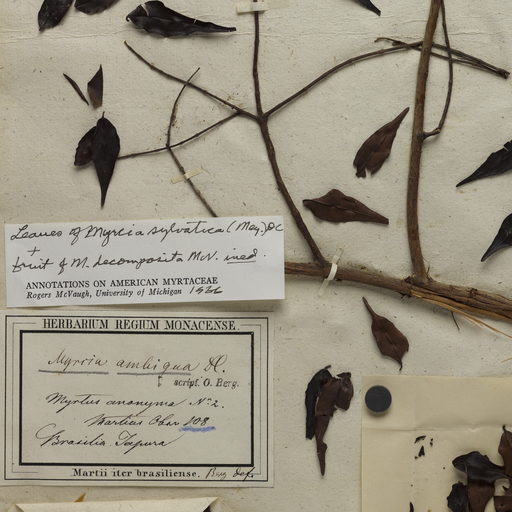 Leaves of Myrcia sylvatica (Mey.) DC
+
fruit of M. decomposita McV. ined.
ANNOTATIONS ON AMERICAN MYRTACEAE
Rogers McVaugh, University of Michigan 1956
HERBARIUM REGIUM MONACENSE.
Myrcia ambigua DC.
script. O. Berg.
Myrtus anonyma No 2.
Martius Obs. 208
Brasilia Japura
Martii iter brasiliense.